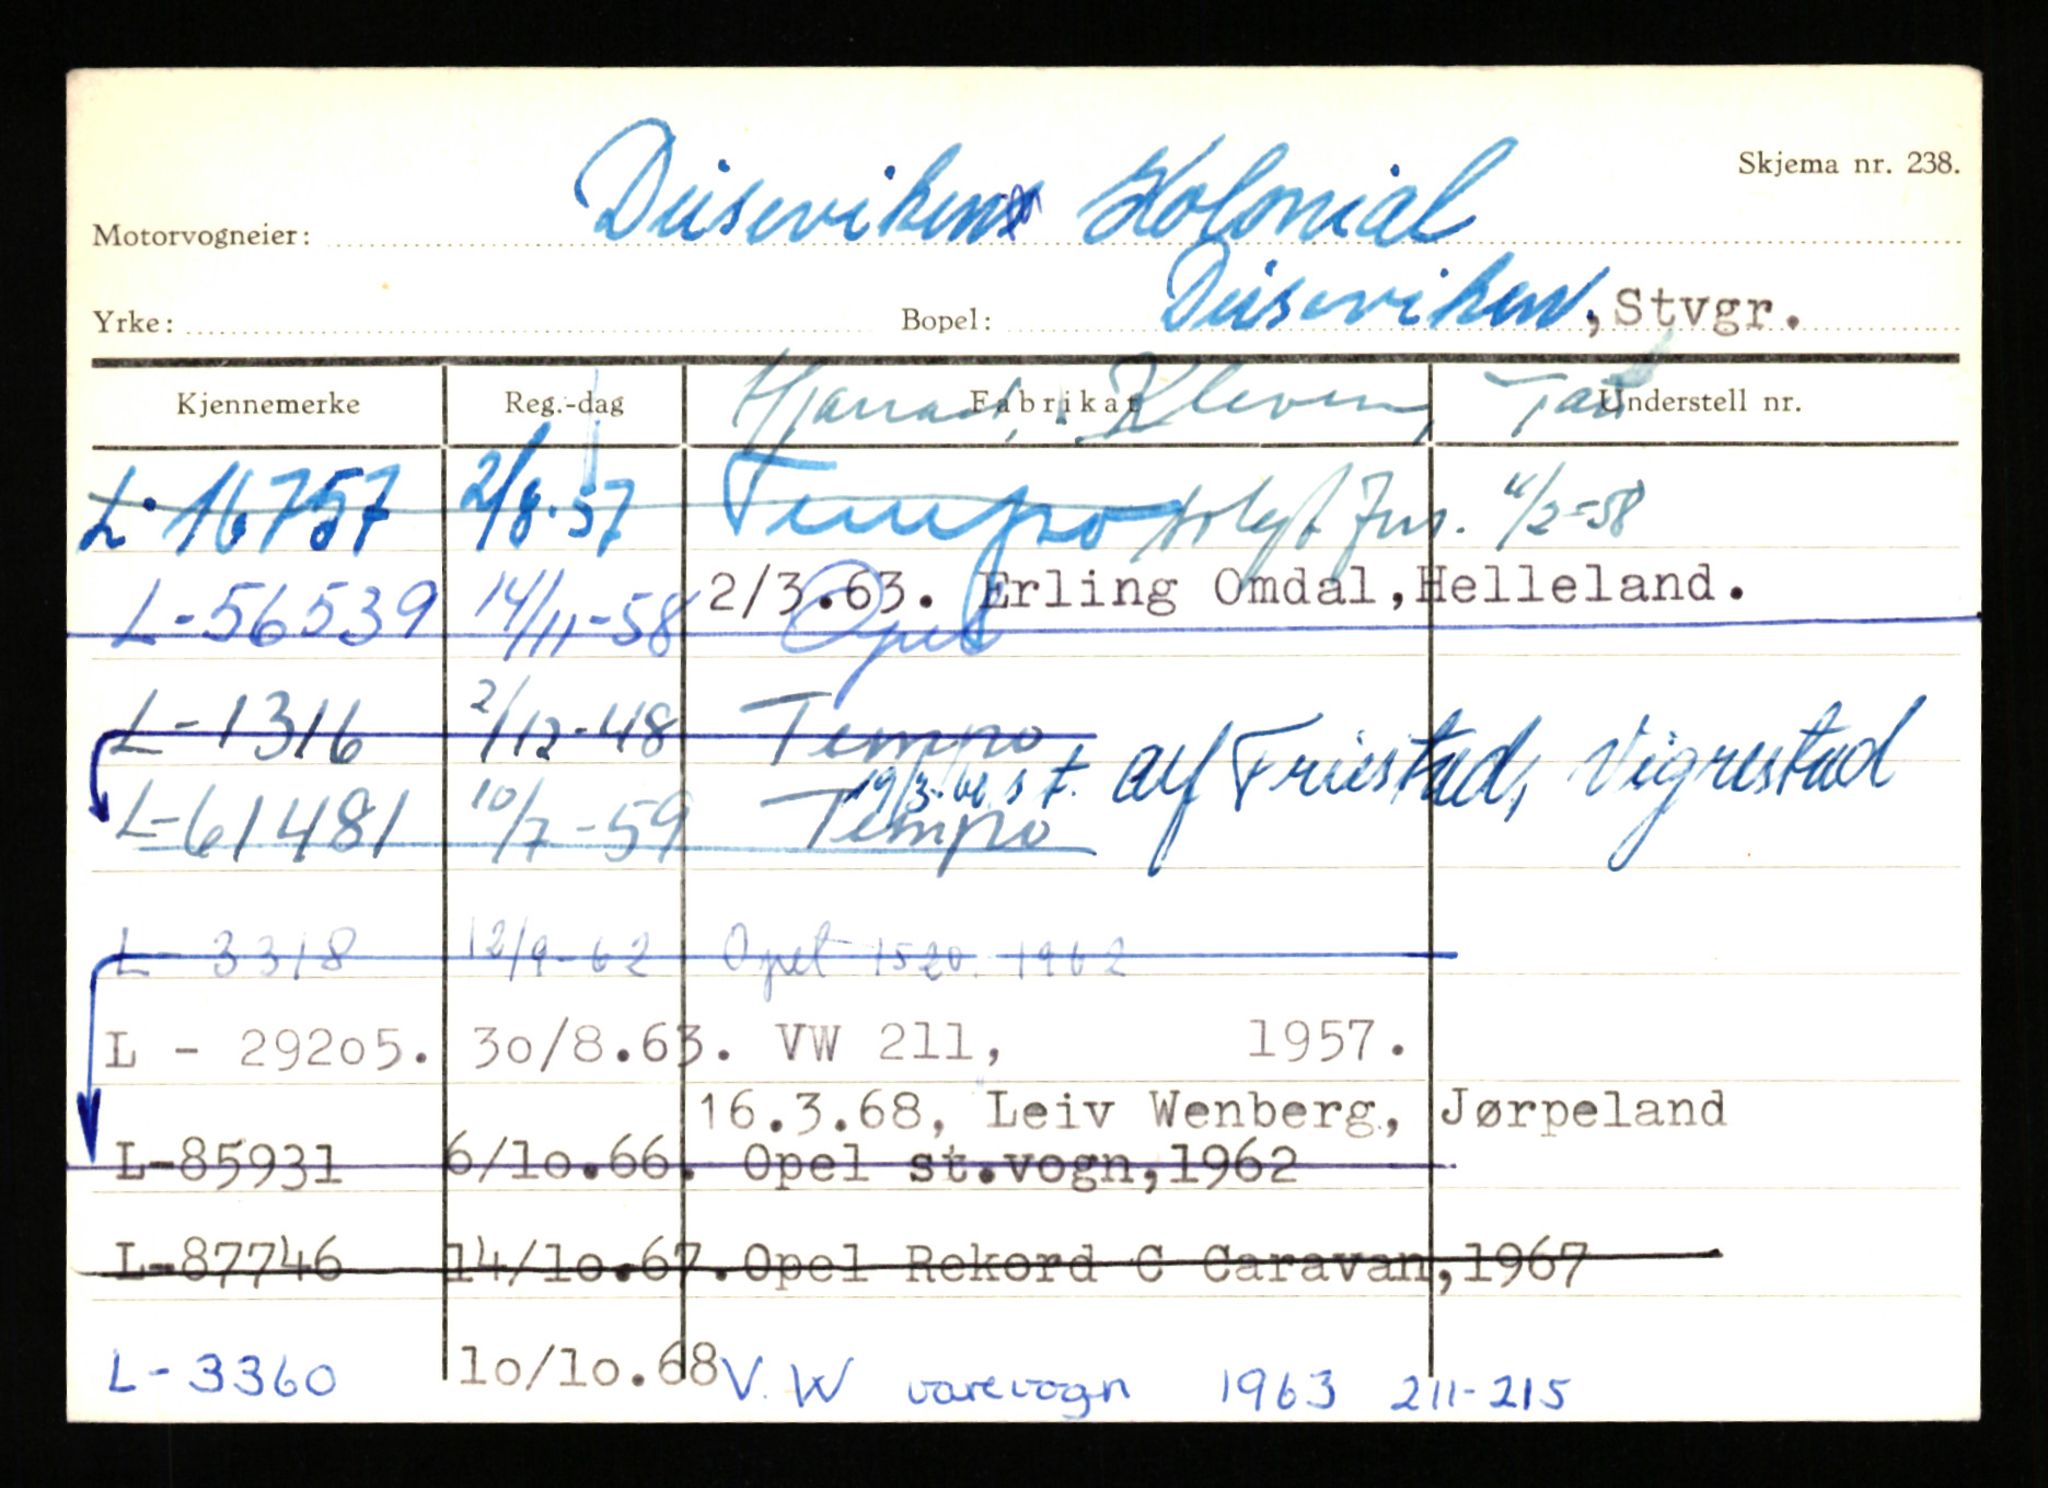 Skjema nr. 238.
Motorvogneier: Dusevikens Kolonial
Yrke: Bopel: Duseviken, Stvgr.
Kjennemerke Reg.-dag Fabrikat Understell nr.
Kleven, Tau
L-16757 2/8-57 Tempo solgt 4/2-58
2/3.63. Erling Omdal, Helleland.
L-56539 14/11-58 Opel
L-1316 2/12-48 Tempo
19/3- s t. Alf Friestad, Vigrestad
L-61481 10/7-59 Tempo
L 3318 12/9-62 Opel 1520 1962
L - 29205. 30/8.63. VW 211, 1957.
16.3.68, Leiv Wenberg, Jørpeland
L-85931 6/10.66. Opel st.vogn,1962
L-87746 14/10.67. Opel Rekord C Caravan,1967
L-3360 10/10.68 V.W varevogn 1963 211-215